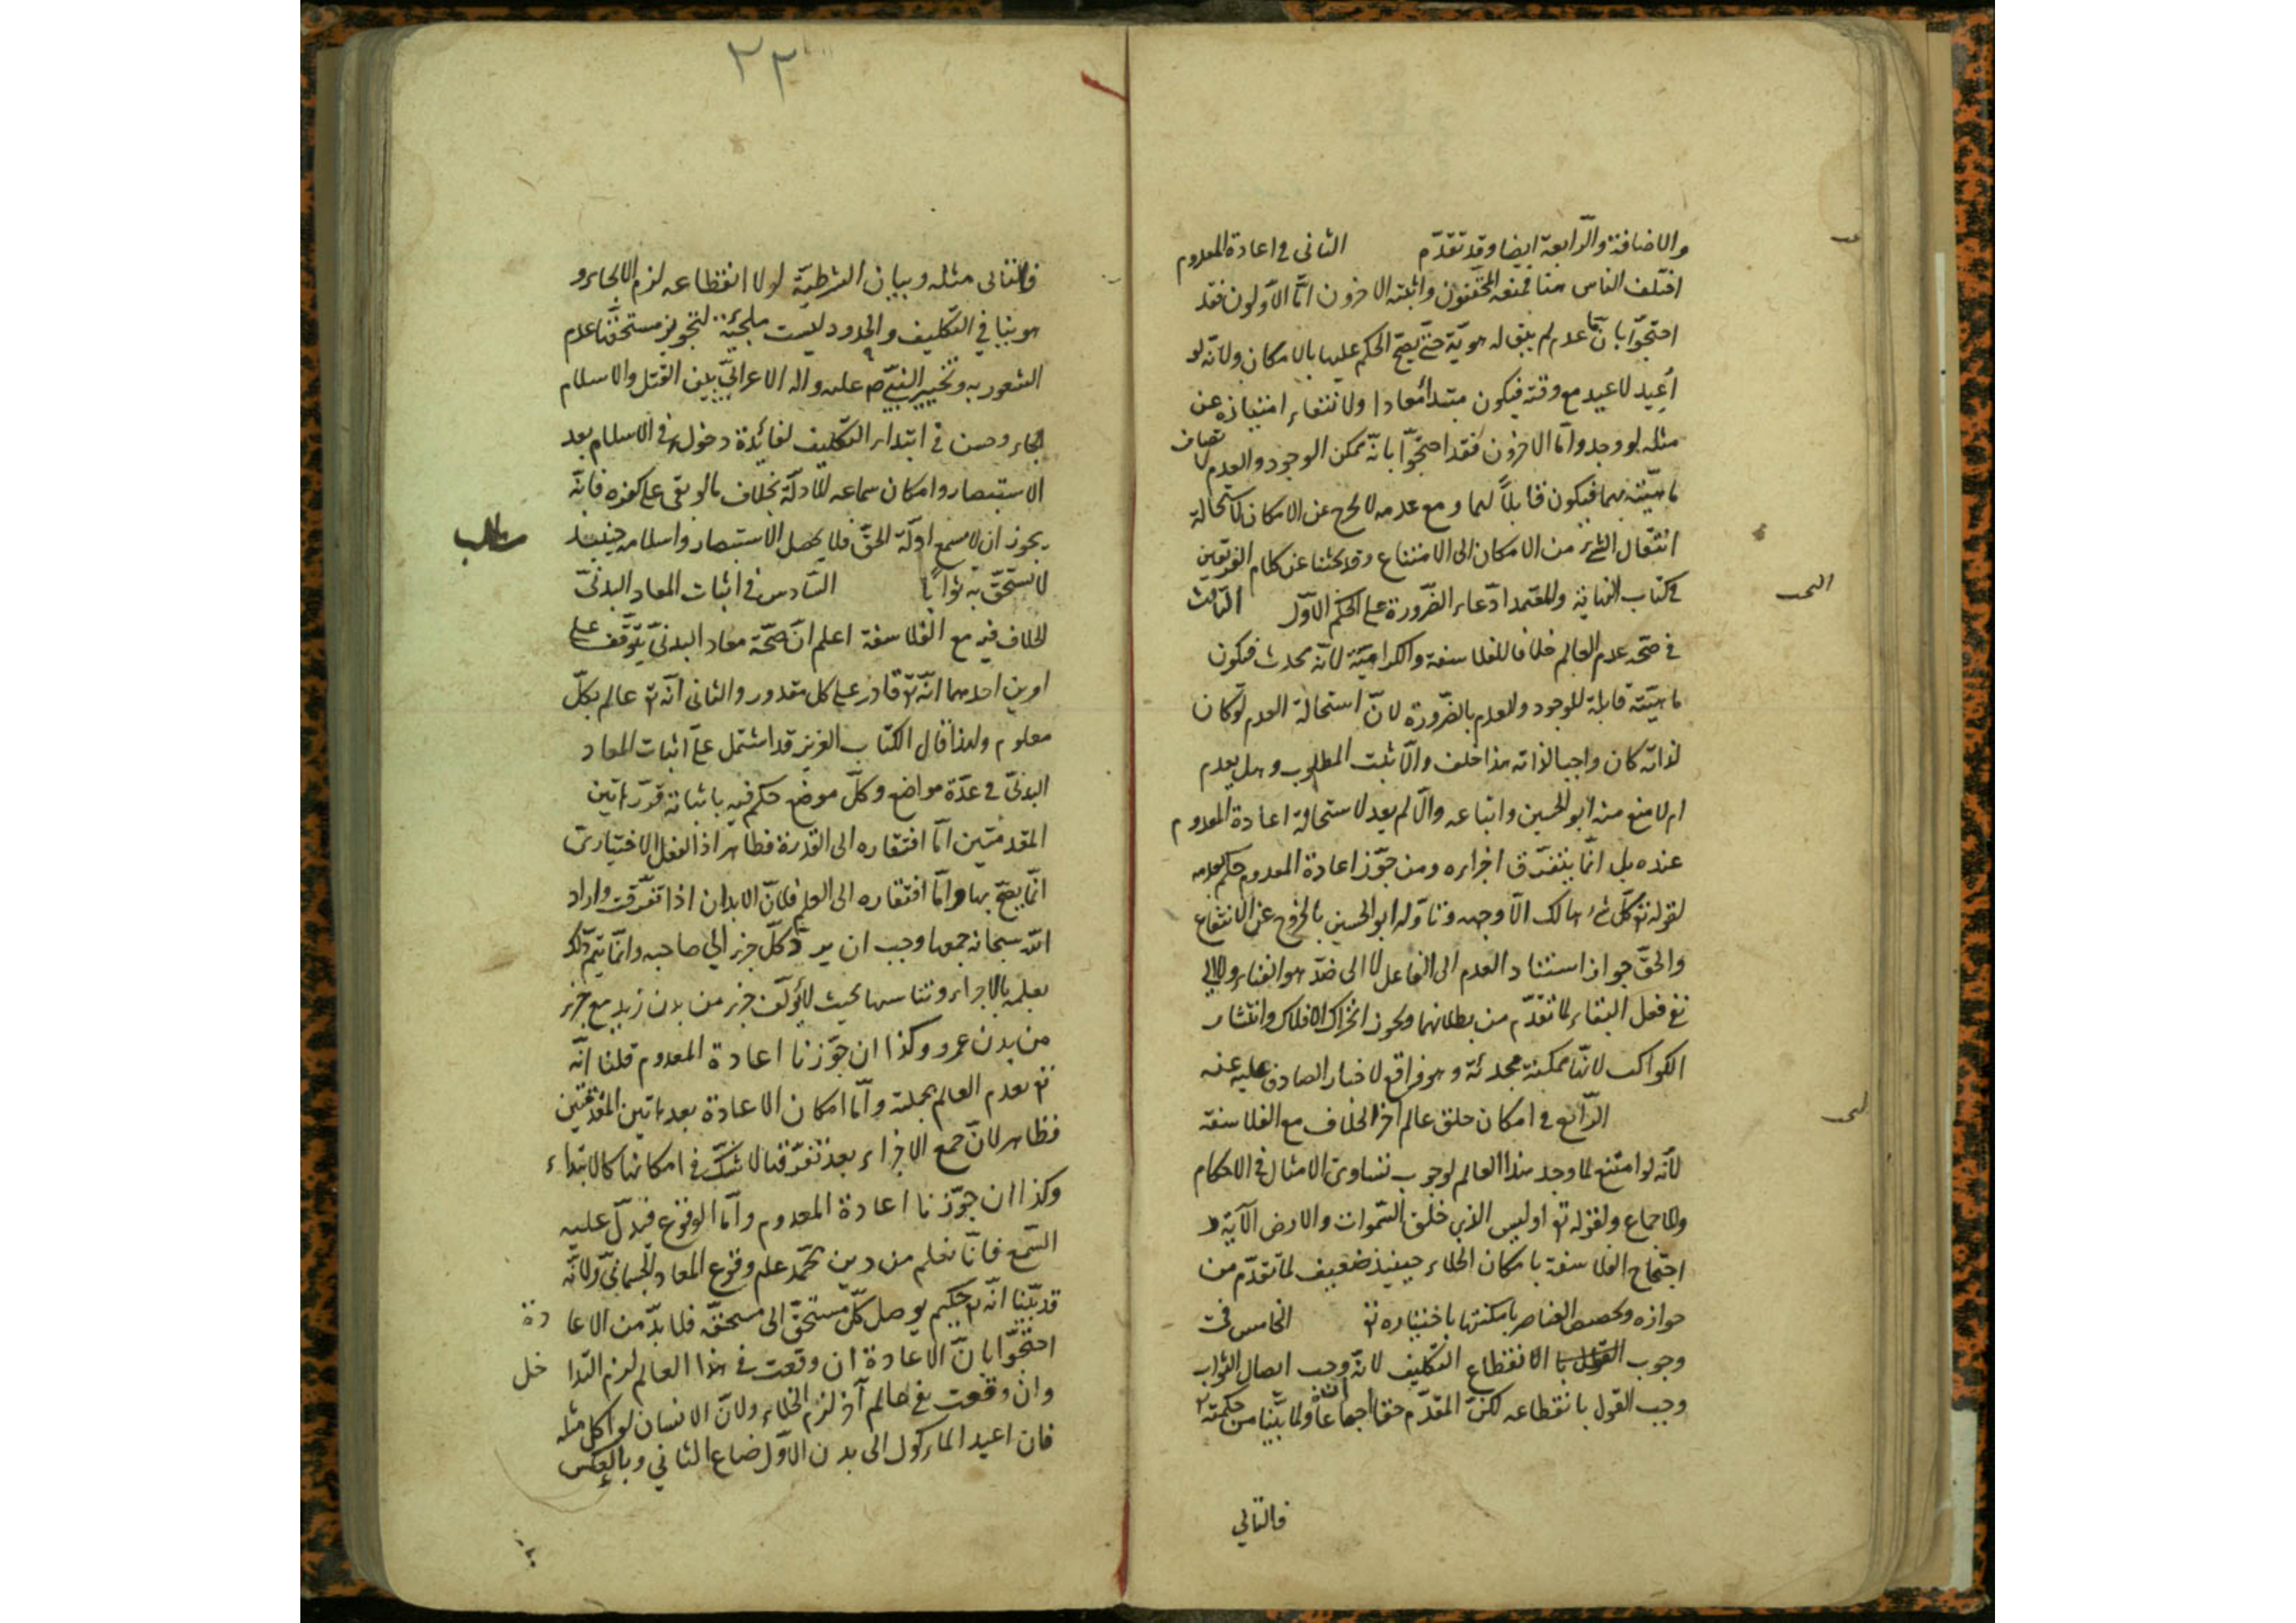 والاضافة والرابعة ايضا وقد تقدّم الثانى فى اعادة المعدوم
اختلف الناس هنا فمنعه المحققون واثبته الاخرون امّا الاولون فقد
احتجّوا بانّ ما عدم لم يبق له هويّة حتى يصحّ الحكم عليها بالامكان ولانّه لو
أعيد لاعيد مع وقته فيكون مبتدأ معادا ولانتفاء امتيازه عن
مثله لو وجد وامّا الاخرون فقد احتجّوا بانّه ممكن الوجود والعدم لاتصاف
ماهيّته بهما فيكون قابلاً لهما ومع عدمه لا يخرج عن الامكان لاستحالة
انتقال الشىء من الامكان الى الامتناع وقد بحثنا عن كلام الفريقين
فى كتاب النهاية والمعتمد ادّعاء الضّرورة على الحكم الاوّل الثالث
فى صحّة عدم العالم خلافا للفلاسفة والكراميّة لانّه محدث فيكون
ماهيّته قابلة للوجود وللعدم بالضّرورة لانّ استحالة العدم لو كان
لذاته كان واجبا لذاته هذا خلف والّا ثبت المطلوب وهل يعدم
ام لا منع منه ابو الحسين واتباعه والّا لم يعد لاستحالة اعادة المعدوم
عنده بل انّما يتفرّق اجزاءه ومن جوّز اعادة المعدوم حكم بعدمه
لقوله تع كلّ شىء هالك الّا وجهه وتأوّله ابو الحسين بالخروج عن الانتفاع
والحقّ جواز استناد العدم الى الفاعل لا الى ضدّ هو الفناء ولا الى
نفى فعل البقاء لما تقدّم من بطلانهما ويجوز انخراق الافلاك وانتشار
الكواكب لانّها ممكنة محدثة وهو واقع لاخبار الصادق عليه عنه
الرّابع فى امكان خلق عالم آخر الخلاف مع الفلاسفة
لأنّه لو امتنع لما وجد هذا العالم لوجوب تساوى الامثال فى الاحكام
والاجماع ولقوله تع اوليس الذى خلق السّموات والارض الآية و
احتجاج الفلاسفة بامكان الخلاء حينئذ ضعيف لما تقدّم من
جوازه وتخصيص العناصر بامكنتها باختياره تع الخامس فى
وجوب الانقطاع التكليف لانّه وجب ايصال الثواب
وجب القول بانقطاعه لكنّ المقدّم حق اجماعاً ولما بيّنا من حكمته
فالتالى
٢٣
فالتالى مثله وبيان الشرطيّة لولا انقطاعه لزم الالجاء و
هو ينافى التكليف والحدود ليست ملجئة لتجويز مستحقّها عدم
الشعور به وتخيير النبىّ ص عليه واله الاعرابىّ بين القتل والاسلام
الجاء وحسن فى ابتداء التكليف لفائدة دخوله فى الاسلام بعد
الاستبصار وامكان سماعه للادلّة بخلاف ما لو بقى على كفره فانّه
يجوز ان لا يسمع ادلّة الحقّ فلا يحصل الاستبصار واسلامه حينئذ
لا يستحقّ به ثوابا السّادس فى اثبات المعاد البدنىّ
الخلاف فيه مع الفلاسفة اعلم انّ صحّة معاد البدنىّ يتوقّف على
امرين احدهما انّه تع قادر على كل مقدور والثانى انّه تع عالم بكلّ
معلوم ولهذا فان الكتاب العزيز قد اشتمل على اثبات المعاد
البدنىّ فى عدّة مواضع وكلّ موضع حكم فيه باثباته قرّر هاتين
المقدمتين امّا افتقاره الى القدرة فظاهر اذ الفعل الاختيارىّ
انّما يصحّ بها وامّا افتقاره الى العلم فلانّ الابدان اذا تفرّقت واراد
اللّه سبحانه جمعها وجب ان يردّ كلّ جزء الى صاحبه وانّما يتمّ ذلك
بعلمه بالاجزاء وتناسبها بحيث لا يؤلّف جزء من بدن زيد مع جزء
من بدن عمرو وكذا ان جوّزنا اعادة المعدوم قلنا انّه
تع يعدم العالم بجملته وامّا امكان الاعادة بعد هاتين المقدّمتين
فظاهر لانّ جمع الاجزاء بعد تفرّقها لا شكّ فى امكانها كالابتداء
وكذا ان جوّزنا اعادة المعدوم وامّا الوقوع فيدلّ عليه
السّمع فانّا نعلم من دين محمّد علم وقوع المعاد الجسمانىّ ولانّه
قد بيّنا انّه تع حكيم يوصل كلّ مستحقّ الى مستحقّه فلا بدّ من الاعادة
احتجّوا بانّ الاعادة ان وقعت فى هذا العالم لزم التداخل
وان وقعت فى عالم آخر لزم الخلاء ولانّ الانسان لو اكل مثله
فان اعيد المأكول الى بدن الاوّل ضاع الثانى وبالعكس